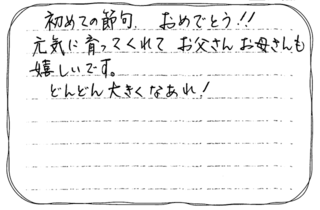 初めての節句 おめでとう!!
元気に育ってくれて お父さん お母さんも
嬉しいです。
どんどん大きくなあれ!